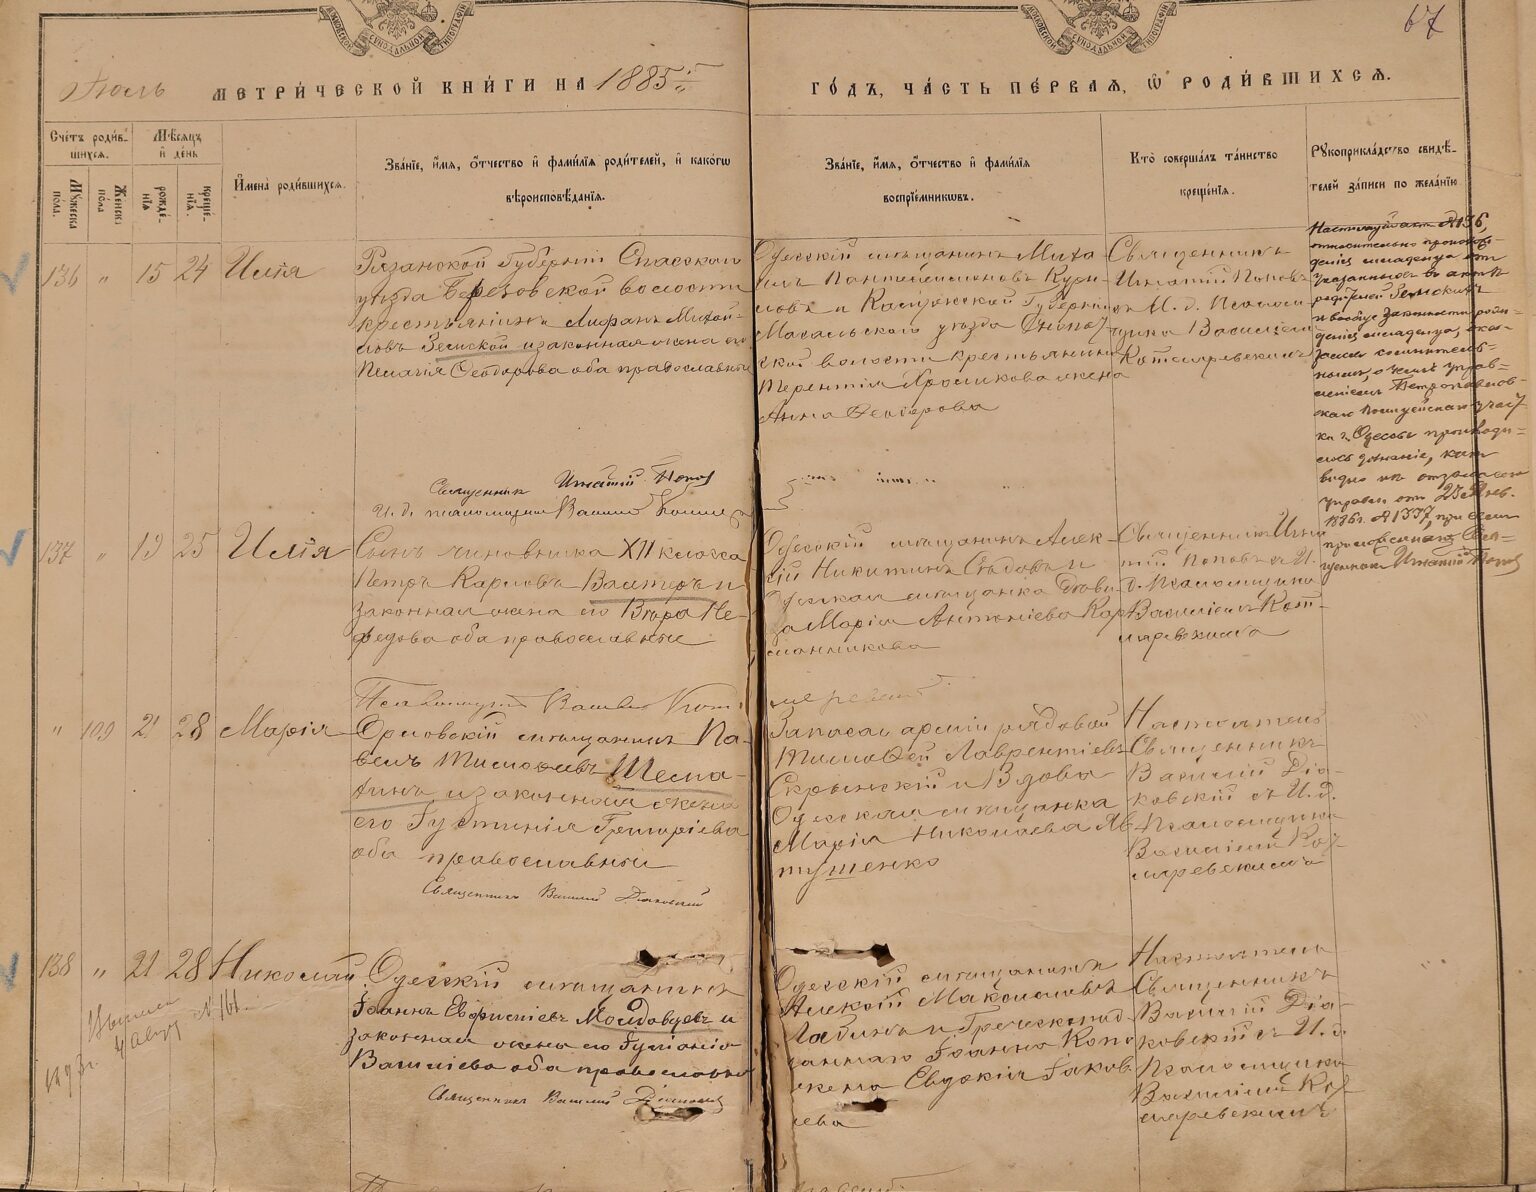 67
Іюль МЕТРИ́ЧЕСКОЙ КНИ́ГИ НА 1885
ГО́ДЪ, ЧА́СТЬ ПЕ́РВАЯ, Ѡ РОДИ́ВШИХСЯ.
Сче́тъ роди́в-
шихся.
Мꙋ́жеска
по́ла.
Же́нска
по́ла
Мѣ́сяцъ
и҆ де́нь
рожде́-
нїя
креще́-
нїя.
И҆мена̀ роди́вшихся.
Зва́нїе, и҆́мя, ѻ҆́тчество и҆ фами́лїя роди́телей, и҆ како́гѡ
вѣроисповѣ́данїя.
Зва́нїе, и҆́мя, ѻ҆́тчество и҆ фами́лїя
воспрїе́мникѡвъ.
Кто̀ соверша́лъ та́инство
креще́нїя.
Рꙋкоприкла́дство свидѣ́-
телей за́писи по жела́нїю
136 „ 15 24 Илія
Рязанской Губерніи Спасскаго
уѣзда Березовской волости
крестьянинъ Лифанъ Михай-
ловъ Земской и законная жена его
Пелагія Ѳеодорова оба православные
Одесскій мѣщанинъ Миха-
илъ Пантелеимоновъ Кури-
ловъ и Калужской Губерніи
Масальскаго уѣзда
ской волости крестьянина
Терентія Хромикова жена
Анна Ѳеодорова
Священникъ
Игнатій Поповъ
съ И. д. Псалом-
щика Василіем
Котляревскимъ
Настоящій актъ №136,
относительно происхож-
денія младенца отъ
указанныхъ въ актѣ
родителей Земскихъ
и вообще законности рож-
денія младенца, ока-
зался сомнитель-
нымъ, о чемъ управ-
леніемъ Петропавлов-
скаго полицейскаго учас-
ка г. Одессы производи-
лось дознаніе, какъ
видно изъ отзыва
управл. отъ 23 Янв.
1886 г. №1337, при семъ
приложеннаго Свя-
щенникъ Игнатій Попов
Священникъ Игнатій Попов
И. д. псаломщика Василій Котля
137 „ 19 25 Илія
Сынъ чиновника XII класса
Петръ Карловъ Валтеръ и
законная жена его Вѣра Не-
федова оба православные
Одесскій мѣщанинъ Алек-
сій Никитинъ Сѣдовъ и
Одесская мѣщанка Вдови-
ца Марія Антоніева Кар-
манникова
Священникъ Игна-
тій Поповъ съ И.
д. Псаломщика
Василіемъ Кот-
ляревскимъ
Псаломщикъ Василій Котл
яревскій
„ 109 21 28 Марія
Орловскій мѣщанинъ Па-
велъ Тимоѳеевъ Шелпа-
хинъ и законная жена
его Густинія Григоріева
оба православные
Священникъ Василій Діаковскій
Запаса арміи рядовой
Тимоѳей Лаврентіевъ
Скрынскій и Вдова
Одесская мѣщанка
Марія Николаева Ав-
тушенко
Настоятель
Священникъ
Василій Діа-
ковскій съ И.д.
Псаломщика
Василіемъ Кот-
ляревскимъ
138 „ 21 28 Николай
Одесскій мѣщанинъ
Іоаннъ Евфиміевъ Молдовцевъ и
законная жена его Іуліанія
Василіева оба православны
Священникъ Василій Діаковскій
4 Авг № 161.
1893 г.
Одесскій мѣщанинъ
Алексій Максимовъ
Лабинъ и Греческопод-
даннаго Іоанна Копо
жена Евдокія Іаков-
лева
Настоятель
Священникъ
Василій Діа-
ковскій съ И. д.
Псаломщика
Василіемъ Кот-
ляревскимъ